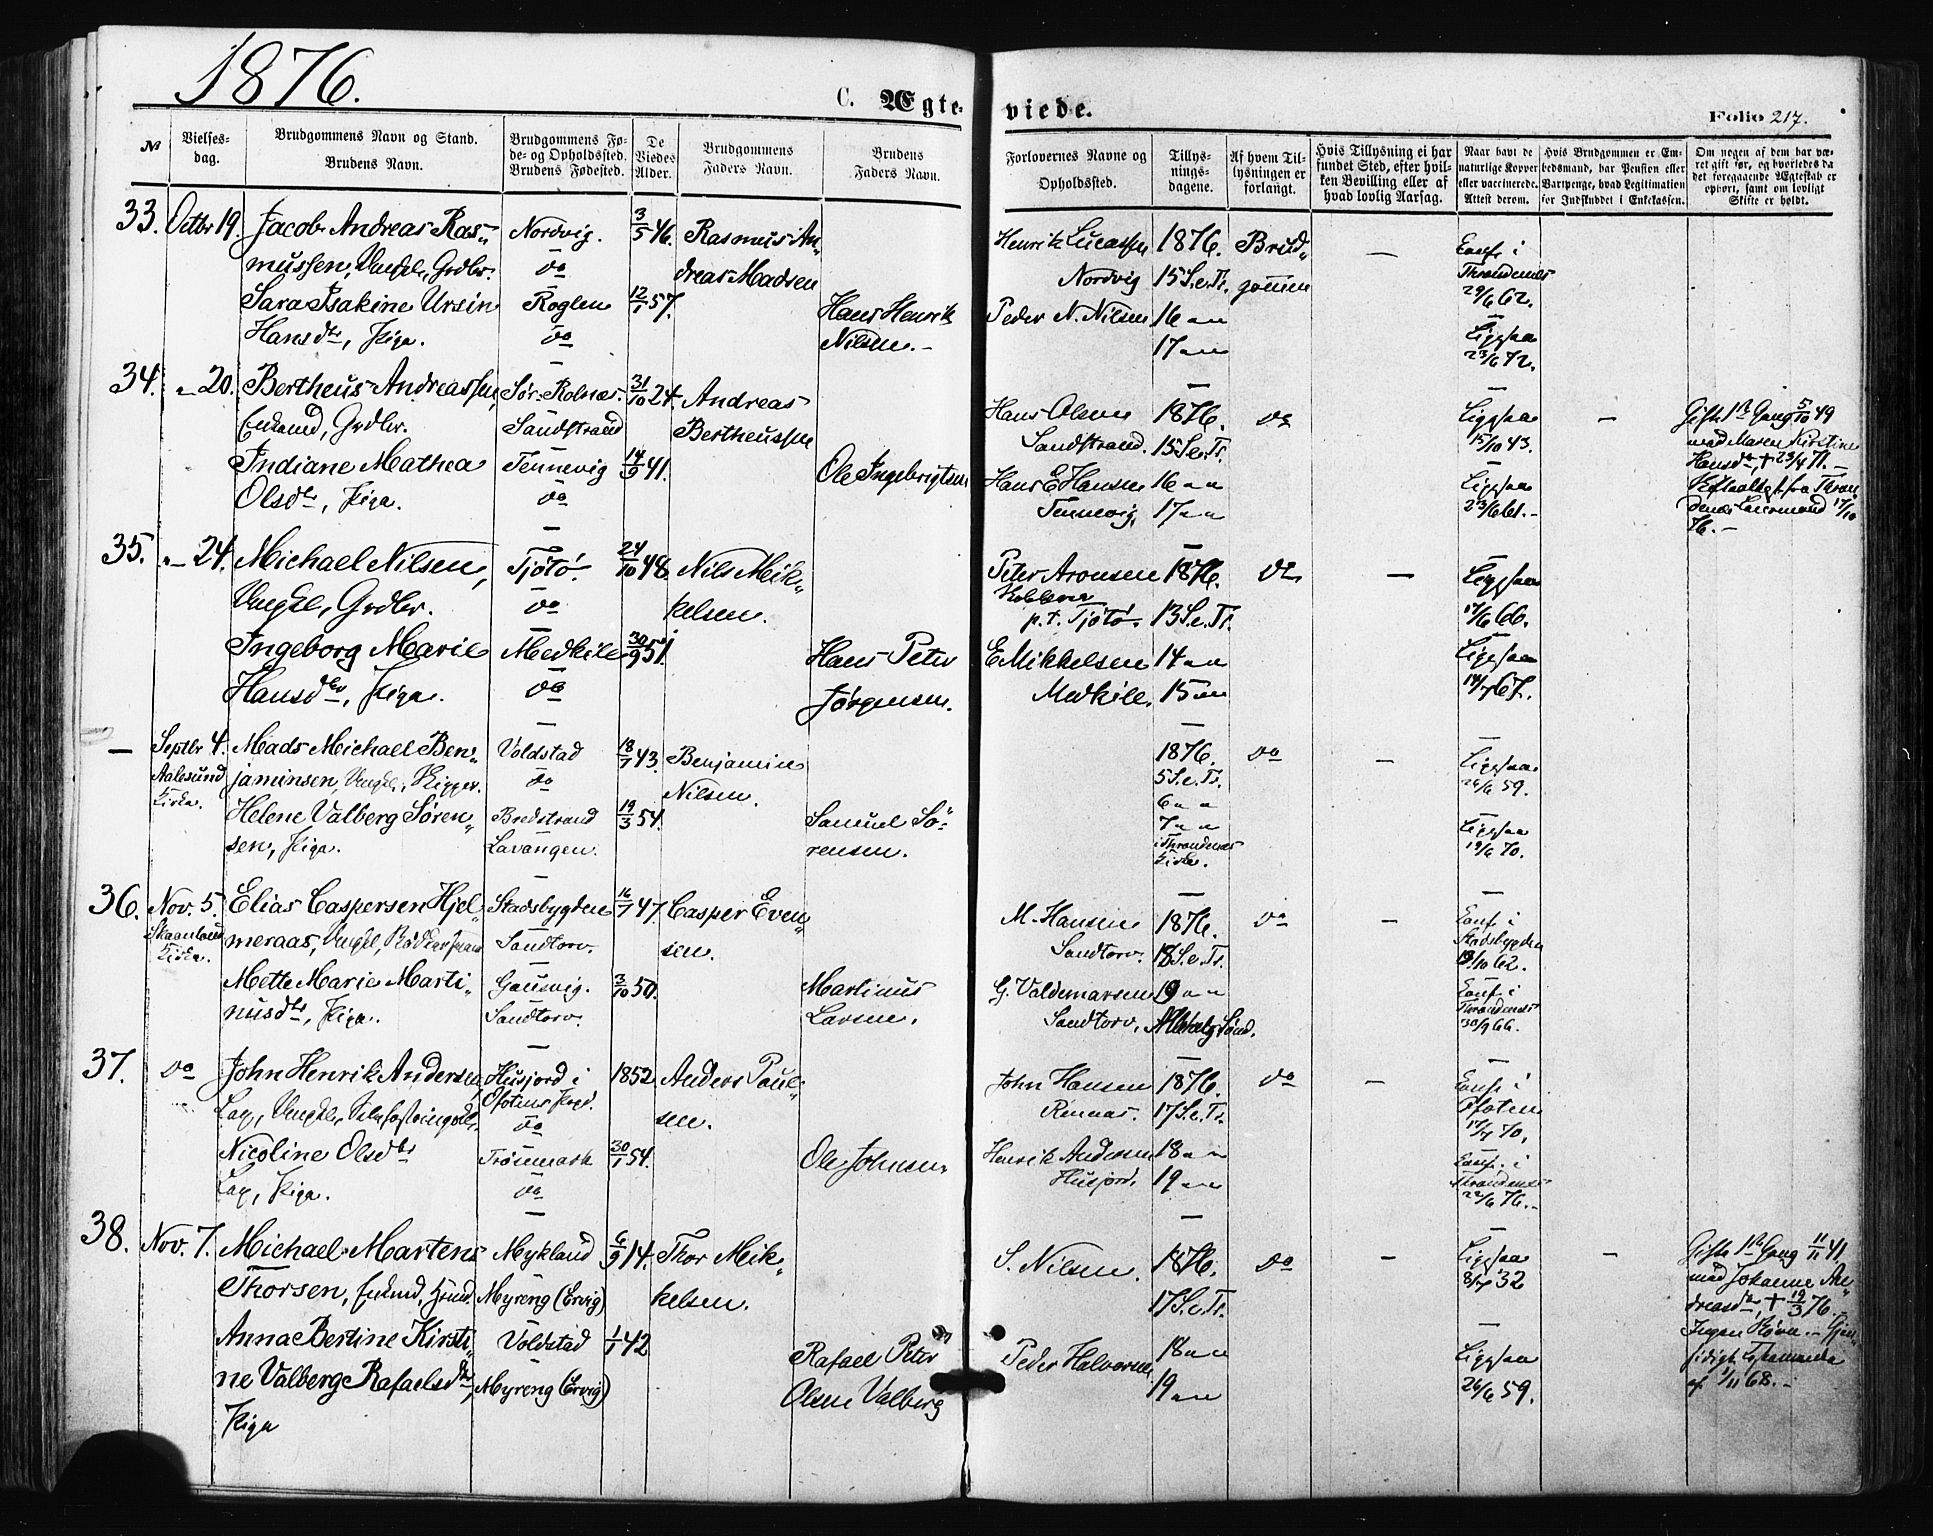 1876.
C. Ægte- viede.
Folio 217.
№
Vielses-
dag.
Brudgommens Navn og Stand.
Brudens Navn.
Brudgommens Fø-
de- og Opholdssted.
Brudens Fødested.
De
Viedes
Alder.
Brudgommens
Faders Navn.
Brudens
Faders Navn.
Forlovernes Navne og
Opholdssted.
Tillys-
nings-
dagene.
Af hvem Til-
lysningen er
forlangt.
Hvis Tillysning ei har
fundet Sted, efter hvil-
ken Bevilling eller af
hvad lovlig Aarsag.
Naar havt de
naturlige Kopper
eller vaccinerede.
Attest derom.
Hvis Brudgommen er Em-
bedsmand, har Pension eller
Vartpenge, hvad Legitimation
for Indskuddet i Enkekassen.
Om nogen af dem har væ-
ret gift før, og hvorledes da
det foregaaende Ægteskab er
ophørt, samt om lovligt
Skifte er holdt.
33. Octbr 19. Jacob Andreas Ras„ Nordvig. 3/5 46. Rasmus An„ Henrik Lucassen 1876. Brud„ —
mussen, Ungkl., Grdbr. do dreas Madsen Nordvig 15 S. e. Tr. gommen Throndenæs
29/6 62.
Sara Isakine Ursin Roglen 12/1 57. Hans Henrik Peder N. Nilsen 16 „ „
Hansdtr, Piga. do Nilsen. — 17 „ „ Ligesaa
23/6 72.
34. „ 20. Bertheus Andreassen, Sør-Rolnæs. 31/10 24. Andreas Hans Olsen 1876. do Ligesaa — Gift 1ste Gang 5/10 49
Enkemd, Grdbr. Sandstrand Bertheussen Sandstrand. 15 S. e. Tr. 15/10 43. med Maren Kirstine
Indiane Mathea Tennevig 14/9 41. Ole Ingebrigtsen Hans E Hansen 16 „ „ Ligesaa Hansdtr, † 23/4 71. —
Olsdtr, Piga. do Tennevig, 17 „ „ 23/6 61. — fra Thron„
denæs Lensmand 17/10
76. —
35. „ 24. Michael Nilsen, Tjøtø. 24/10 48. Nils Mik„ Peter Aronsen 1876. do — Ligesaa
Ungkl., Grdbr. do kelsen. p. t. Tjøtø. 13 S. e. Tr. 17/6 66.
Ingeborg Marie Medkile 30/9 51. Hans Peter E Mikkelsen 14 „ „ Ligesaa
Hansdtr, Piga. do Jørgensen. Medkile. 15 „ „ 14/7 67.
— Septbr 4. Mads Michael Ben„ Voldstad 18/1 43. Benjamin 1876. do — Ligesaa
Aalesund jaminsen, Ungkl., Skipper. do Nilsen. 5 S. e. Tr. 26/6 59.
Kirke. Helene Valberg Søren„ Bredstrand 19/3 54. Samuel Sø„ 6 „ „
7 „ „ Ligesaa
sen, Piga. Lavangen. rensen. i Throndenæs 19/6 70.
Kirke.
36. Nov. 5. Elias Caspersen Hjel„ Stadsbygden 16/7 47. Casper Even„ M. Hansen 1876. do —
Skaanland meraas, Ungkl., Sandtorv. sen. Sandtorv. 18 S. e. Tr. Stadsbygden
Kirke. /10 62.
Mette Marie Marti„ Gausvig. 3/10 50. Martinus G. Valdemarsen 19 „ „
nusdtr, Piga. Sandtorv. Larsen. Sandtorv. Throndenæs
30/9 66.
37. do John Henrik Andersen, Husjord i 1852 Anders Poul„ John Hansen 1876. do —
Lap, Ungkl., Ofotens do sen. Rennaas. 17 S. e. Tr. Ofoten
17/7 70.
Nicoline Olsdtr 30/1 54. Ole Johnsen Henrik Andersen 18 „ „
Lap, Piga. do Husjord. 19 „ „ Throndenæs
22/6 76. —
38. Nov. 7. Michael Martens Mykland 6/9 14. Thor Mik„ S. Nilsen. 1876. do — Ligesaa — Gift 1ste Gang 11/11 41
Thorsen, Enkemd, Myreng (Ervig) kelsen. 17 S. e. Tr. 32 med Johanne An„
dreasdtr, † 19/3 76. —
Anna Bertine Kirsti„ Voldstad 1/1 42 Rafael Peter Peder Halvorsen 18 „ „ Ligesaa Ingen Børn. — Gjen„
ne Valberg Rafaelsdtr, Myreng (Ervig) Olsen Valberg 19 „ „ 26/6 59. sidigt Testamente
af 1/11 68. —
Piga